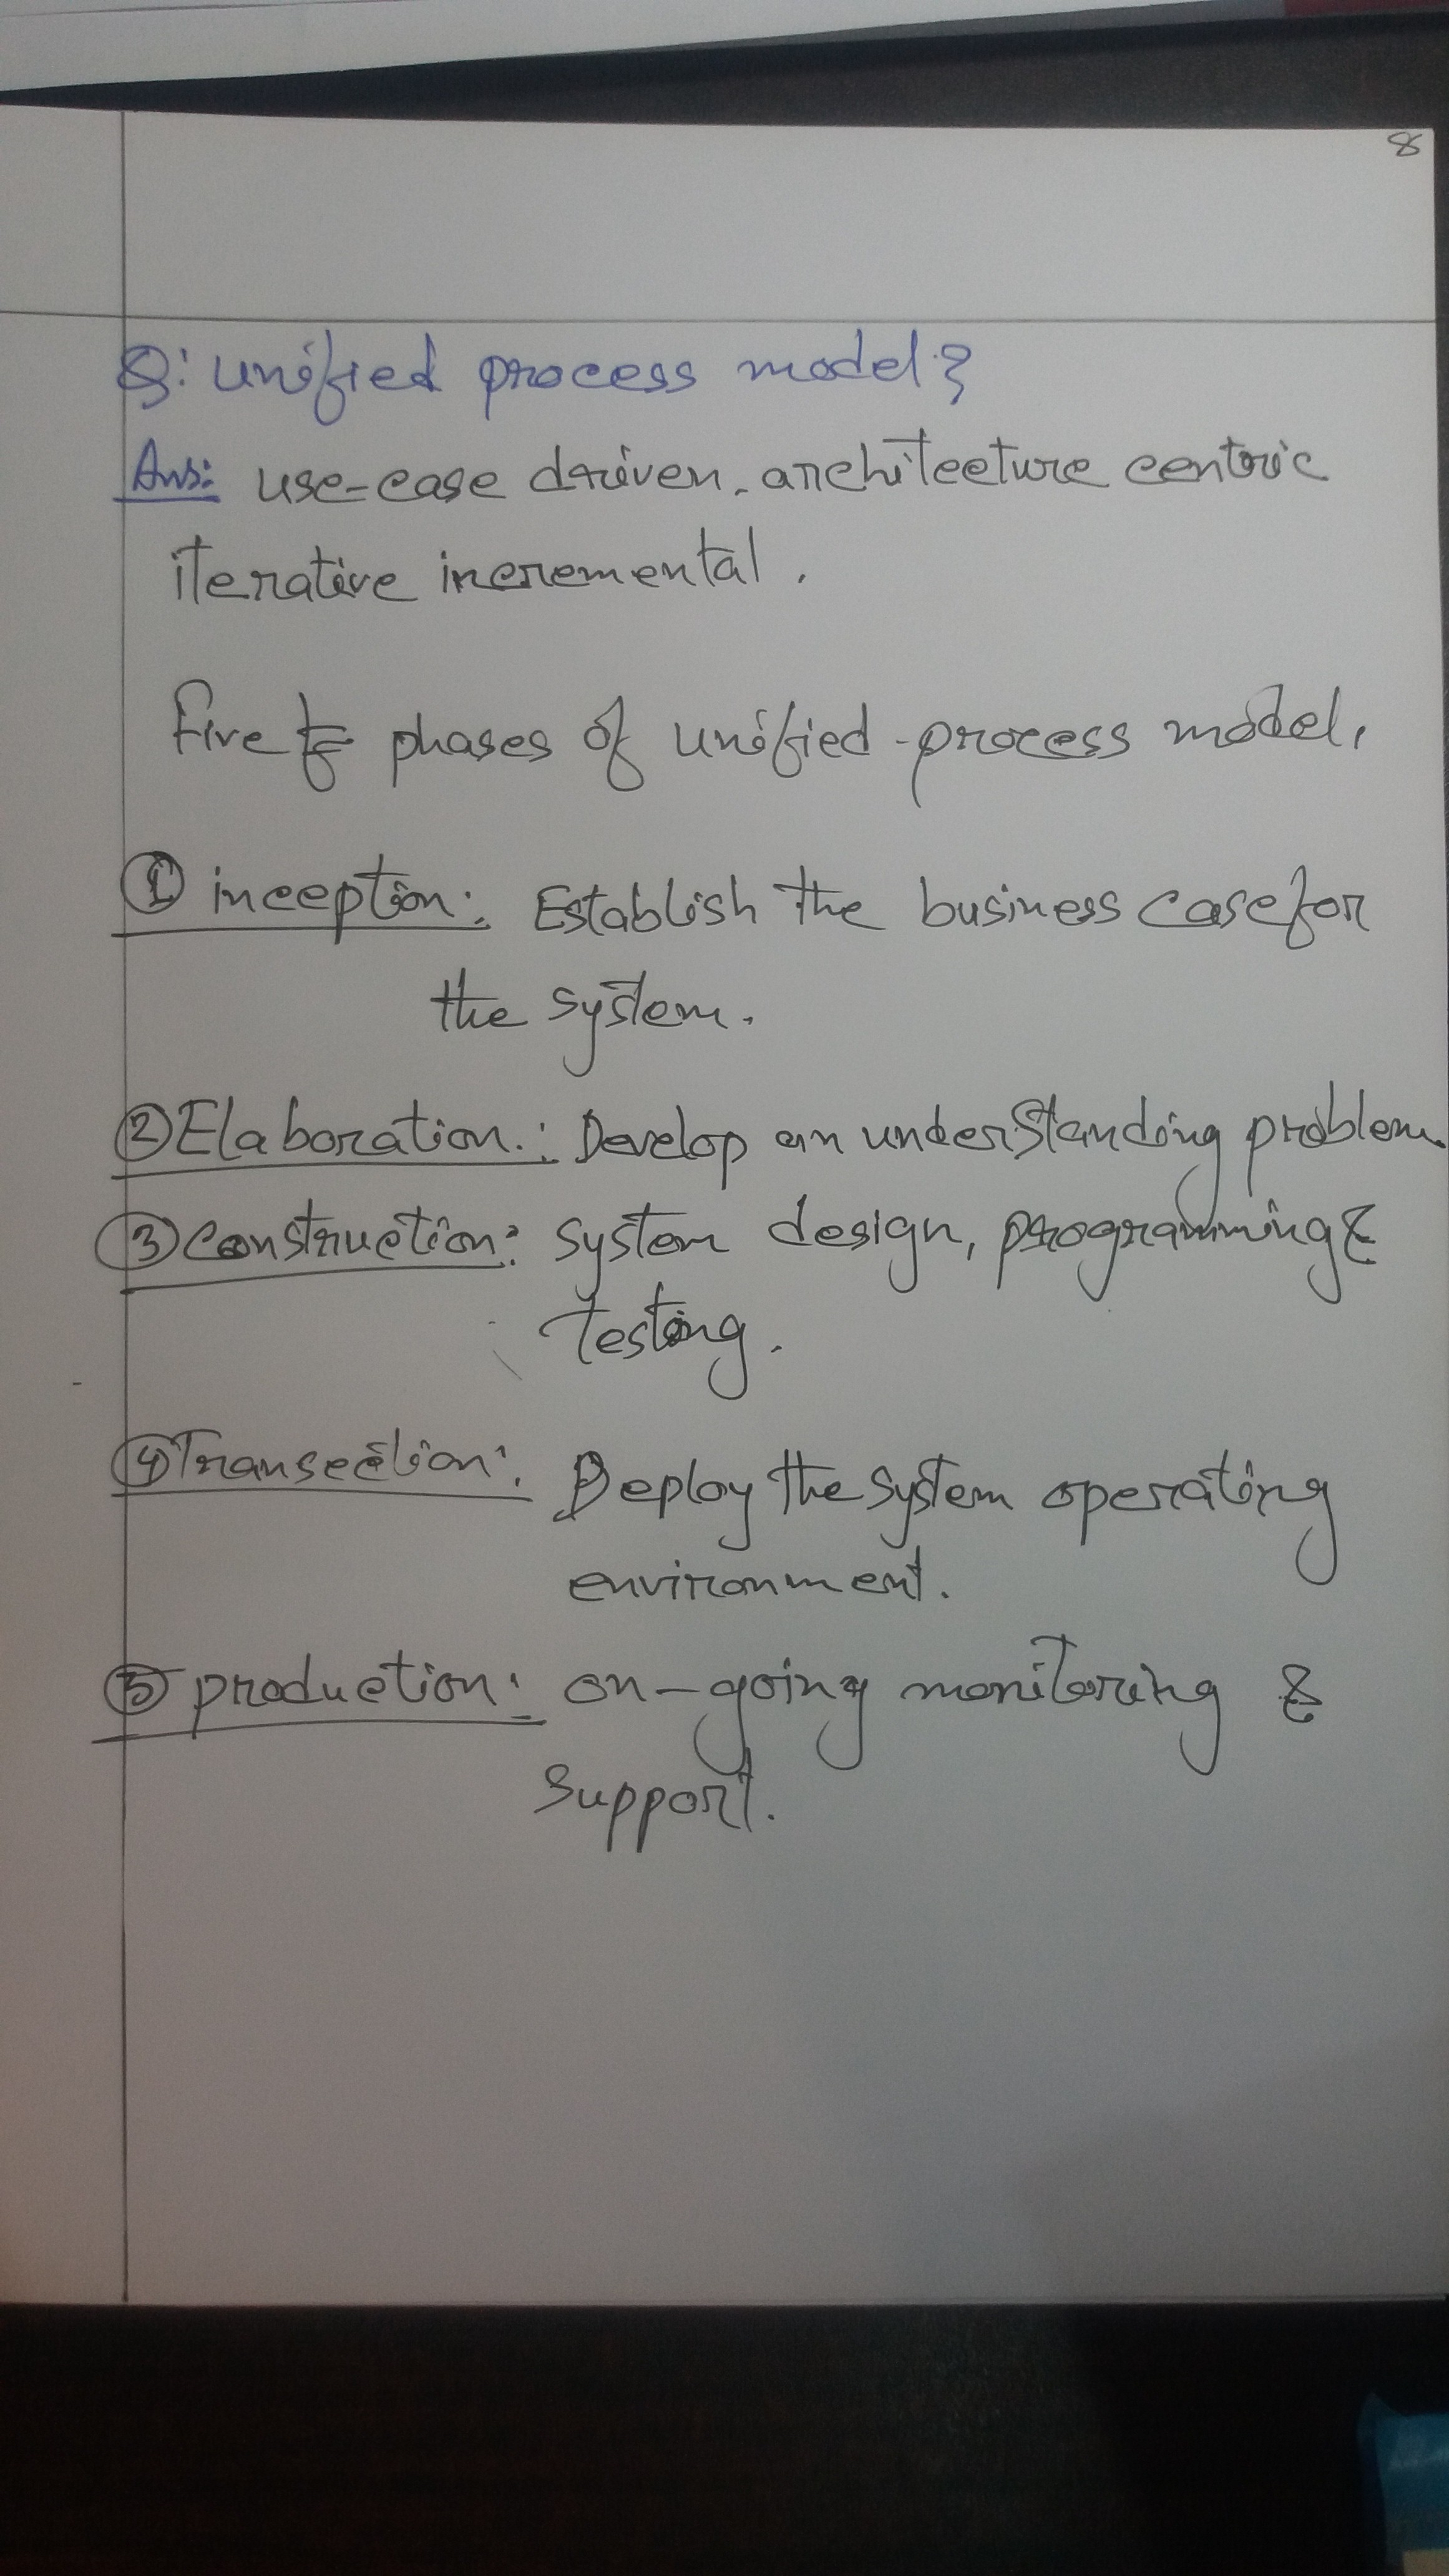 8
Q: unified process model?
Ans: use-case driven, architecture centric
iterative incremental.
Five phases of unified process model,
① inception: Establish the business case for
the system.
② Elaboration: Develop an understanding problem.
③ construction: system design, programming &
testing.
④ Transection: Deploy the system operating
environment.
⑤ production: on-going monitoring &
support.